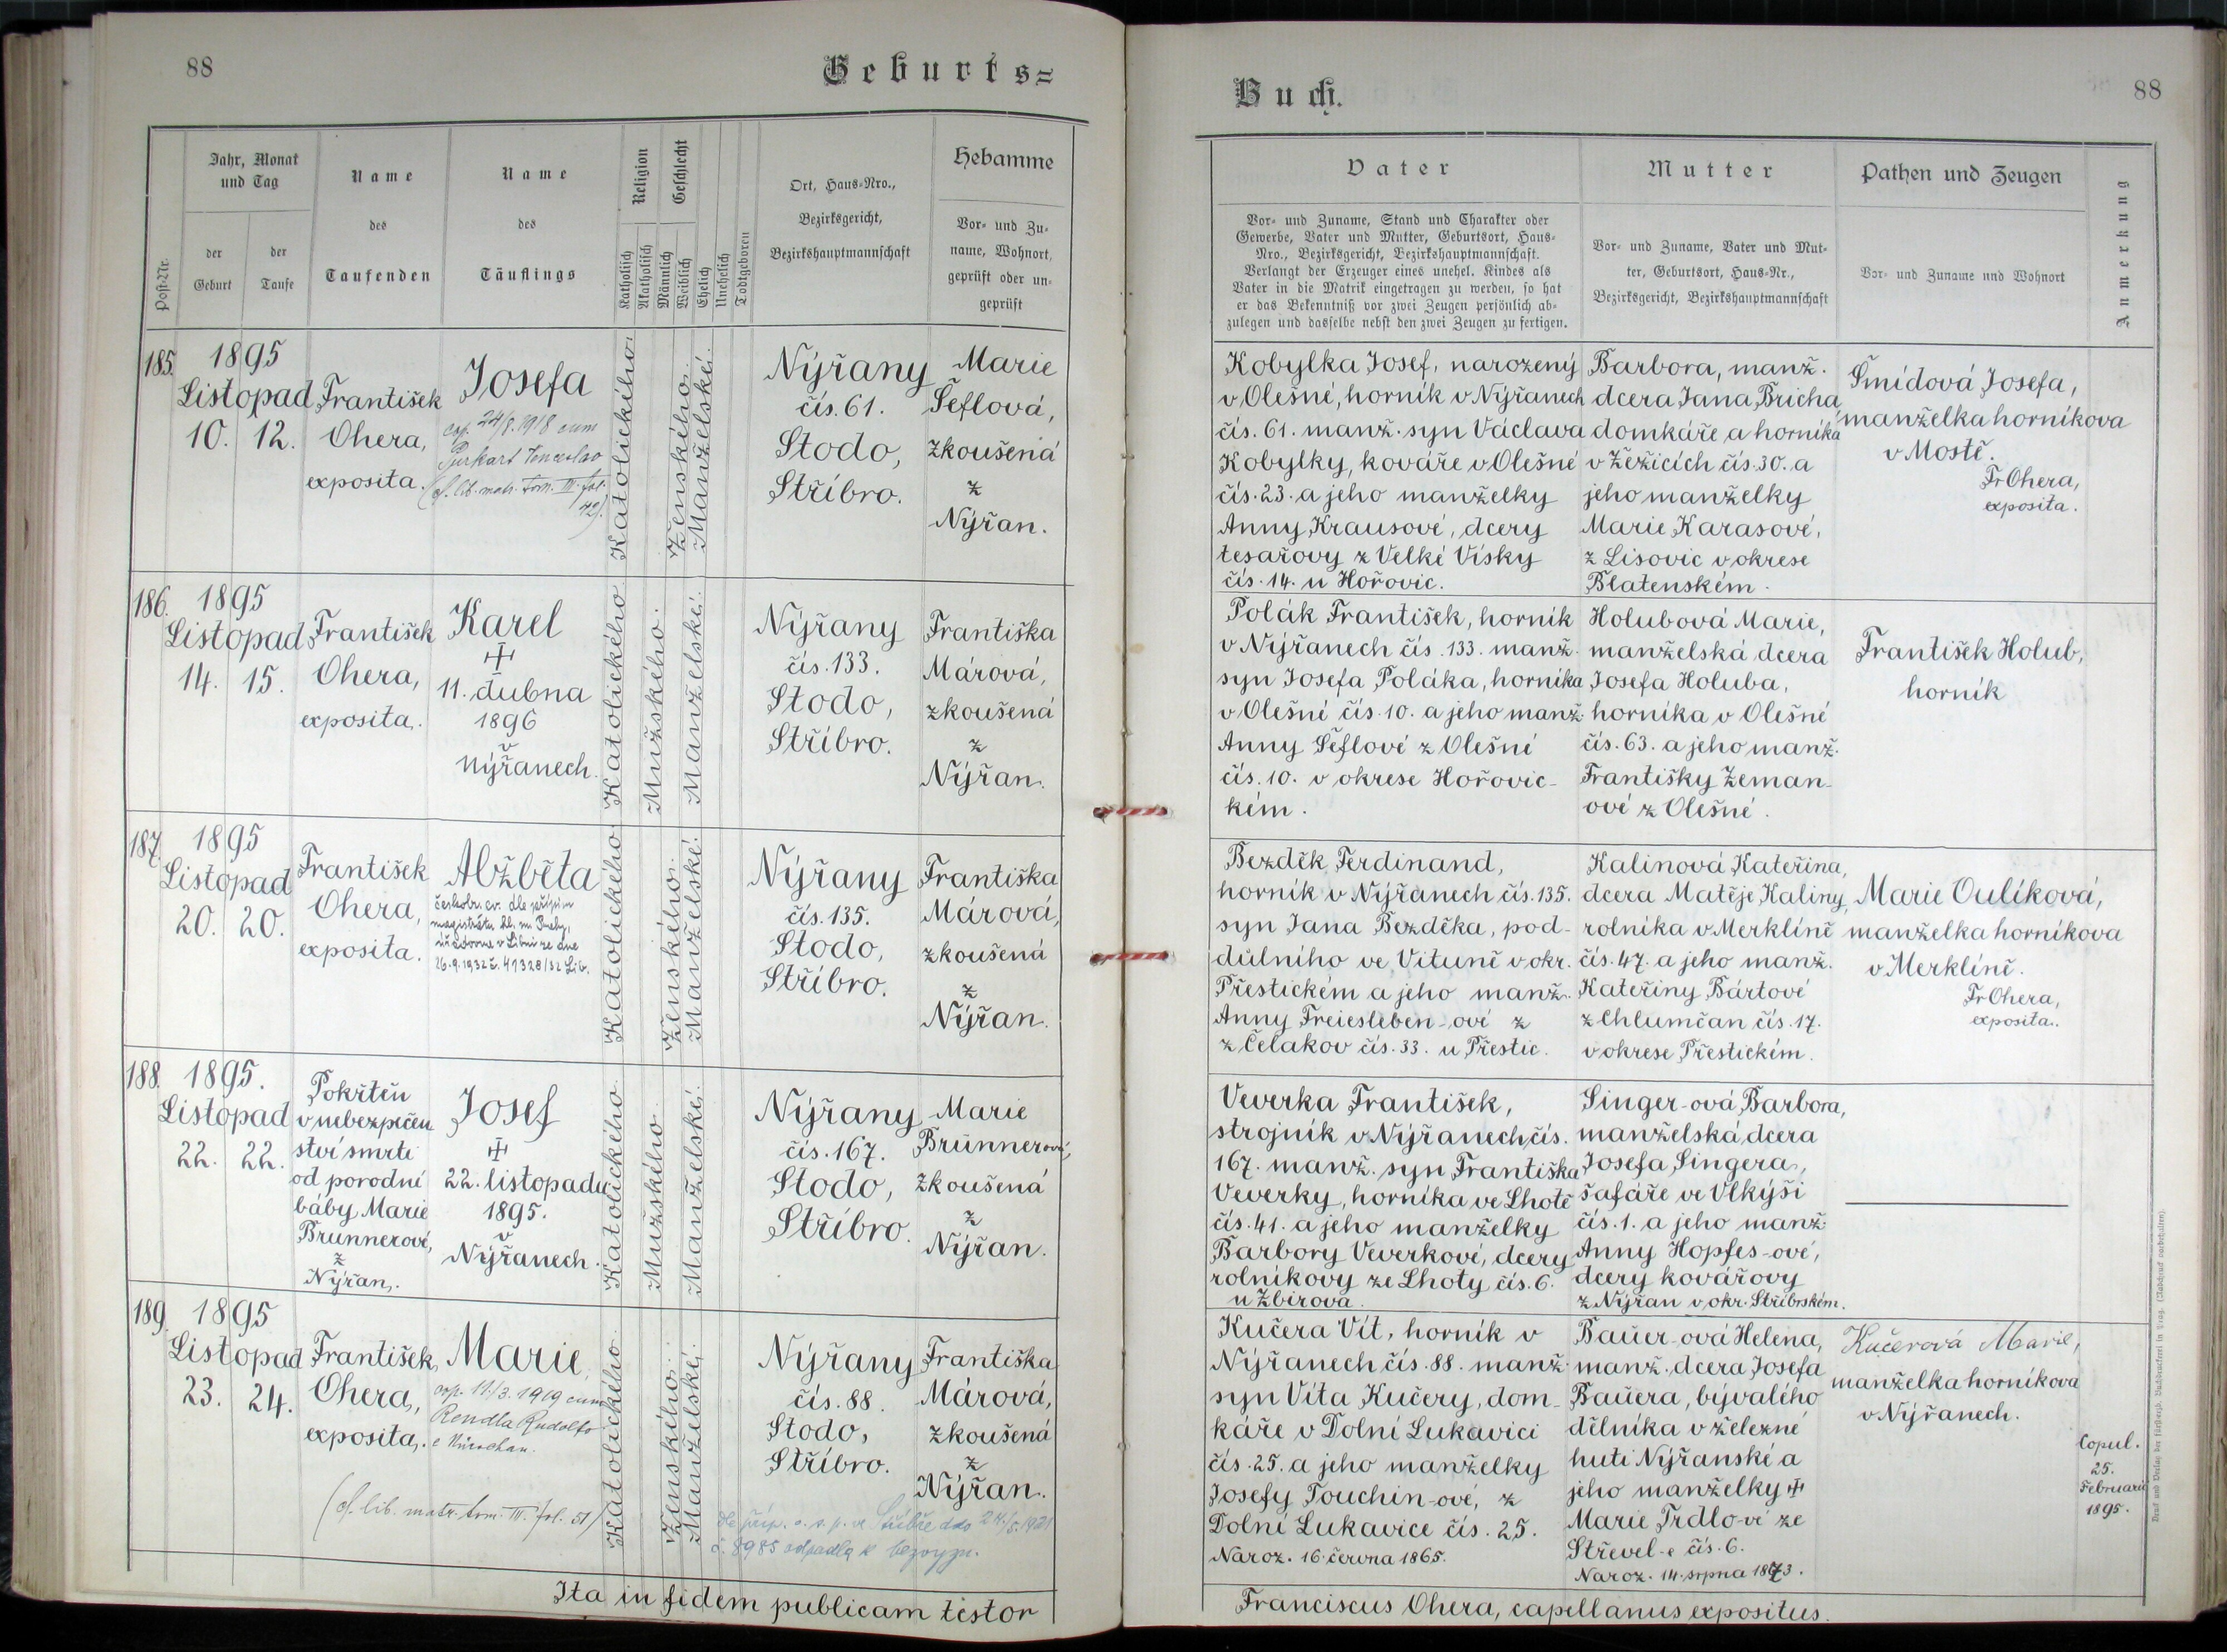 88
Geburts=
Jahr, Monat
und Tag
Name
Name
Religion
Geschlecht
Ort, Haus-Nro.,
Hebamme
des
des
Bezirksgericht,
Vor- und Zu-
Post-Nr.
der
der
Taufenden
Täuflings
Katholisch
Akatholisch
Männlich
Weiblich
Ehelich
Unehelich
Todtgeboren
Bezirkshauptmannschaft
name, Wohnort,
Geburt
Taufe
geprüft oder un-
geprüft
185.
1895
Listopad
10. 12.
František
Ohera,
exposita.
Josefa
cop. 24/8. 1918 cum
Purkart Venceslao
(cf. lib. matr. tom. III. fol.
42).
Katolického.
Ženského.
Manželské.
Nýřany
čís. 61.
Stodo,
Stříbro.
Marie
Šeflová,
zkoušená
z
Nýřan.
186.
1895
Listopad
14. 15.
František
Ohera,
exposita.
Karel
✠
11. dubna
1896
v
Nýřanech.
Katolického.
Mužského.
Manželské.
Nýřany
čís. 133.
Stodo,
Stříbro.
Františka
Márová,
zkoušená
z
Nýřan.
187.
1895
Listopad
20. 20.
František
Ohera,
exposita.
Alžběta
českobr. ev. dle přípisu
magistrátu hl. m. Prahy,
úřadovna v Libni ze dne
26.9.1932 č. 41328/32 Lib.
Katolického
Ženského.
Manželské.
Nýřany
čís. 135.
Stodo,
Stříbro.
Františka
Márová,
zkoušená
z
Nýřan.
188.
1895.
Listopad
22. 22.
Pokřtěn
v nebezpečen
ství smrti
od porodní
báby Marie
Brunnerové,
z
Nýřan.
Josef
✠
22. listopadu
1895.
v
Nýřanech.
Katolického.
Mužského.
Manželské.
Nýřany
čís. 167.
Stodo,
Stříbro.
Marie
Brunnerová,
zkoušená
z
Nýřan.
189.
1895
Listopad
23. 24.
František
Ohera,
exposita.
Marie
cop. 11/3. 1919 cum
Rendla Rudolfo
e Nürschan.
(cf. lib. matr. tom. III. fol. 51)
Katolického
Ženského.
Manželské.
Nýřany
čís. 88.
Stodo,
Stříbro.
Františka
Márová,
zkoušená
z
Nýřan.
dle příp. o. s. p. ve Stříbře dto 24/5. 1921
č. 8985 odpadla k bezvyzn.
Ita in fidem publicam testor
Buch.
88
Vater
Mutter
Pathen und Zeugen
Anmerkung
Vor- und Zuname, Stand und Charakter oder
Gewerbe, Vater und Mutter, Geburtsort, Haus-
Nro., Bezirksgericht, Bezirkshauptmannschaft.
Verlangt der Erzeuger eines unehel. Kindes als
Vater in die Matrik eingetragen zu werden, so hat
er das Bekenntniß vor zwei Zeugen persönlich ab-
zulegen und dasselbe nebst den zwei Zeugen zu fertigen.
Vor- und Zuname, Vater und Mut-
ter, Geburtsort, Haus-Nr.,
Bezirksgericht, Bezirkshauptmannschaft
Vor- und Zuname und Wohnort
Kobylka Josef, narozený
v Olešné, horník v Nýřanech
čís. 61. manž. syn Václava
Kobylky, kováře v Olešné
čís. 23. a jeho manželky
Anny Krausové, dcery
tesařovy z Velké Vísky
čís. 14. u Hořovic.
Barbora, manž.
dcera Jana Bricha,
domkáře a horníka
v Žežicích čís. 30. a
jeho manželky
Marie Karasové,
z Lisovic v okrese
Blatenském.
Šmídová Josefa,
manželka horníkova
v Mostě.
Fr Ohera,
exposita.
Polák František, horník
v Nýřanech čís. 133. manž.
syn Josefa Poláka, horníka
v Olešné čís. 10. a jeho manž.
Anny Šeflové z Olešné
čís. 10. v okrese Hořovic-
kém.
Holubová Marie,
manželská dcera
Josefa Holuba,
horníka v Olešné
čís. 63. a jeho manž.
Františky Zeman-
ové z Olešné.
František Holub,
horník
Bezděk Ferdinand,
horník v Nýřanech čís. 135.
syn Jana Bezděka, pod-
důlního ve Vituně v okr.
Přestickém a jeho manž.
Anny Freiesleben-ové z
z Čelakov čís. 33. u Přestic.
Kalinová Kateřina,
dcera Matěje Kaliny,
rolníka v Merklíně
čís. 47. a jeho manž.
Kateřiny Bártové
z Chlumčan čís. 17.
v okrese Přestickém.
Marie Oulíková,
manželka horníkova
v Merklíně.
Fr Ohera,
exposita.
Veverka František,
strojník v Nýřanech čís.
167. manž. syn Františka
Veverky, horníka ve Lhotě
čís. 41. a jeho manželky
Barbory Veverkové, dcery
rolníkovy ze Lhoty čís. 6.
u Zbirova.
Singer-ová Barbora,
manželská dcera
Josefa Singera,
šafáře ve Vlkýši
čís. 1. a jeho manž.
Anny Hopfes-ové,
dcery kovářovy
z Nýřan v okr. Stříbrském.
Kučera Vít, horník v
Nýřanech čís. 88. manž.
syn Víta Kučery, dom-
káře v Dolní Lukavici
čís. 25. a jeho manželky
Josefy Touchin-ové, z
Dolní Lukavice čís. 25.
Naroz. 16. června 1865.
Bauer-ová Helena,
manž. dcera Josefa
Bauera, bývalého
dělníka v železné
huti Nýřanské a
jeho manželky ✠
Marie Trdlo-vé ze
Střevel-e čís. 6.
Naroz. 14. srpna 1873.
Kučerová Marie,
manželka horníkova
v Nýřanech.
Copul.
25.
Februarii
1895.
Franciscus Ohera, capellanus expositus.